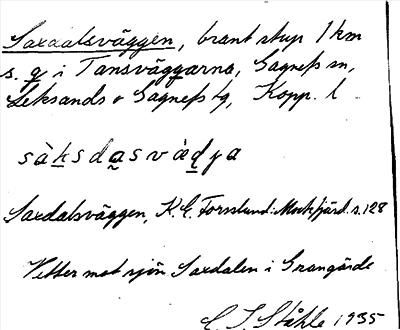 Saxdalsväggen, brant stup 1 km
s. g i Tansväggarna, Gagnefs sn,
Leksands o Gagnefs tg, Kopp. l
sàksdasvèdya
Saxdalsväggen, K. E. Forsslund: Mockfjärd s. 128
Vetter mot sjön Saxdalen i Grangärde
E. I. Ståhle 1935